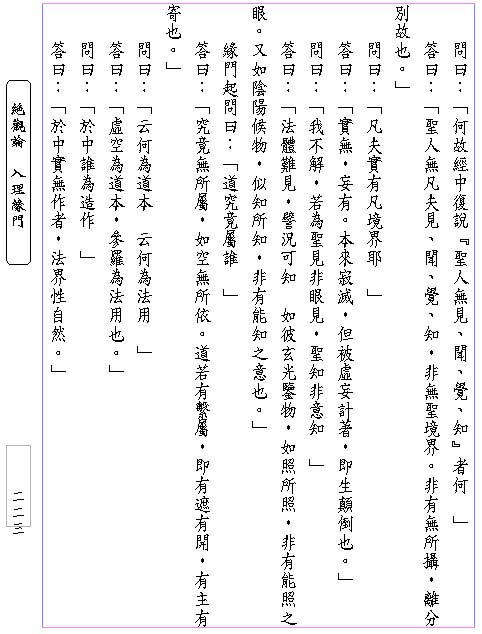 問曰：「何故經中復說『聖人無見、聞、覺、知』者何　」
答曰：「聖人無凡夫見、聞、覺、知，非無聖境界。非有無所攝，離分
別故也。」
問曰：「凡夫實有凡境界耶　」
答曰：「實無，妄有。本來寂滅，但被虛妄計著，即生顛倒也。」
問曰：「我不解，若為聖見非眼見，聖知非意知　」
答曰：「法體難見，譬況可知　如彼玄光鑒物，如照所照，非有能照之
眼。又如陰陽候物，似知所知，非有能知之意也。」
緣門起問曰：「道究竟屬誰　」
答曰：「究竟無所屬，如空無所依。道若有繫屬，即有遮有開，有主有
寄也。」
問曰：「云何為道本　云何為法用　」
答曰：「虛空為道本，參羅為法用也。」
問曰：「於中誰為造作　」
答曰：「於中實無作者，法界性自然。」
絕觀論　入理緣門
二二三